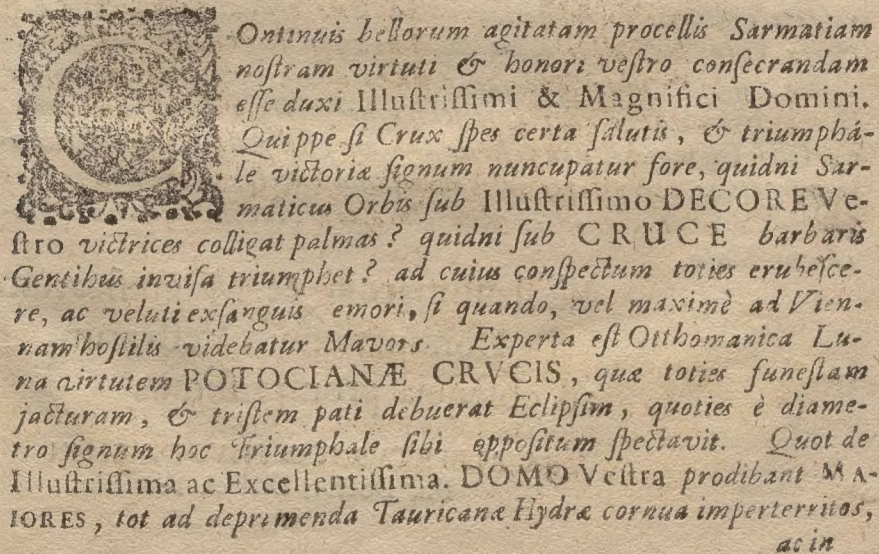 COntinuis bellorum agitatam procellis Sarmatiam
noſtram virtuti & honori veſtro conſecrandam
eſſe duxi Illuſtriſſimi & Magnifici Domini.
Quippe ſi Crux ſpes certa ſalutis, & triumphá-
le victoriæ ſignum nuncupatur fore, quidni Sar-
maticus Orbis ſub Illuſtriſſimo DECORE Ve-
ſtro victrices colligat palmas? quidni ſub CRUCE barbaris
Gentibus inviſa triumphet? ad cuius conſpectum toties erubeſce-
re, ac veluti exſanguis emori, ſi quando, vel maximè ad Vien-
nam hoſtilis videbatur Mavors. Experta eſt Otthomanica Lu-
na virtutem POTOCIANÆ CRVCIS, quæ toties funeſtam
jacturam, & triſtem pati debuerat Eclipſim, quoties è diame-
tro ſignum hoc Triumphale ſibi oppoſitum ſpectavit. Quot de
Illuſtriſſima ac Excellentiſſima. DOMO Veſtra prodibant MA-
IORES, tot ad deprimenda Tauricanæ Hydræ cornua imperterritos,
ac in